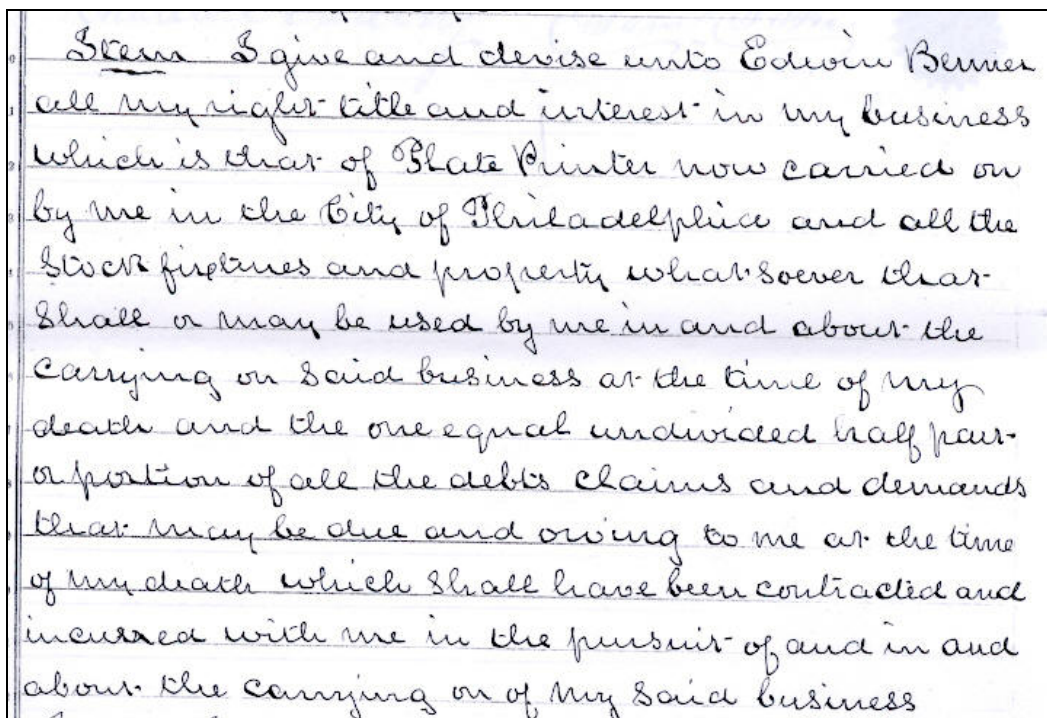 Item I give and devise unto Edwin Benner
all my right title and interest in my business
which is that of Plate Printer now carried on
by me in the City of Philadelphia and all the
Stock fixtures and property what soever that
Shall or may be used by me in and about the
Carrying on Said business at the time of my
death and the one equal undivided half part
or portion of all the debts Claims and demands
that may be due and owing to me at the time
of my death which Shall have been contracted and
incurred with me in the pursuit of and in and
about the carrying on of my Said business